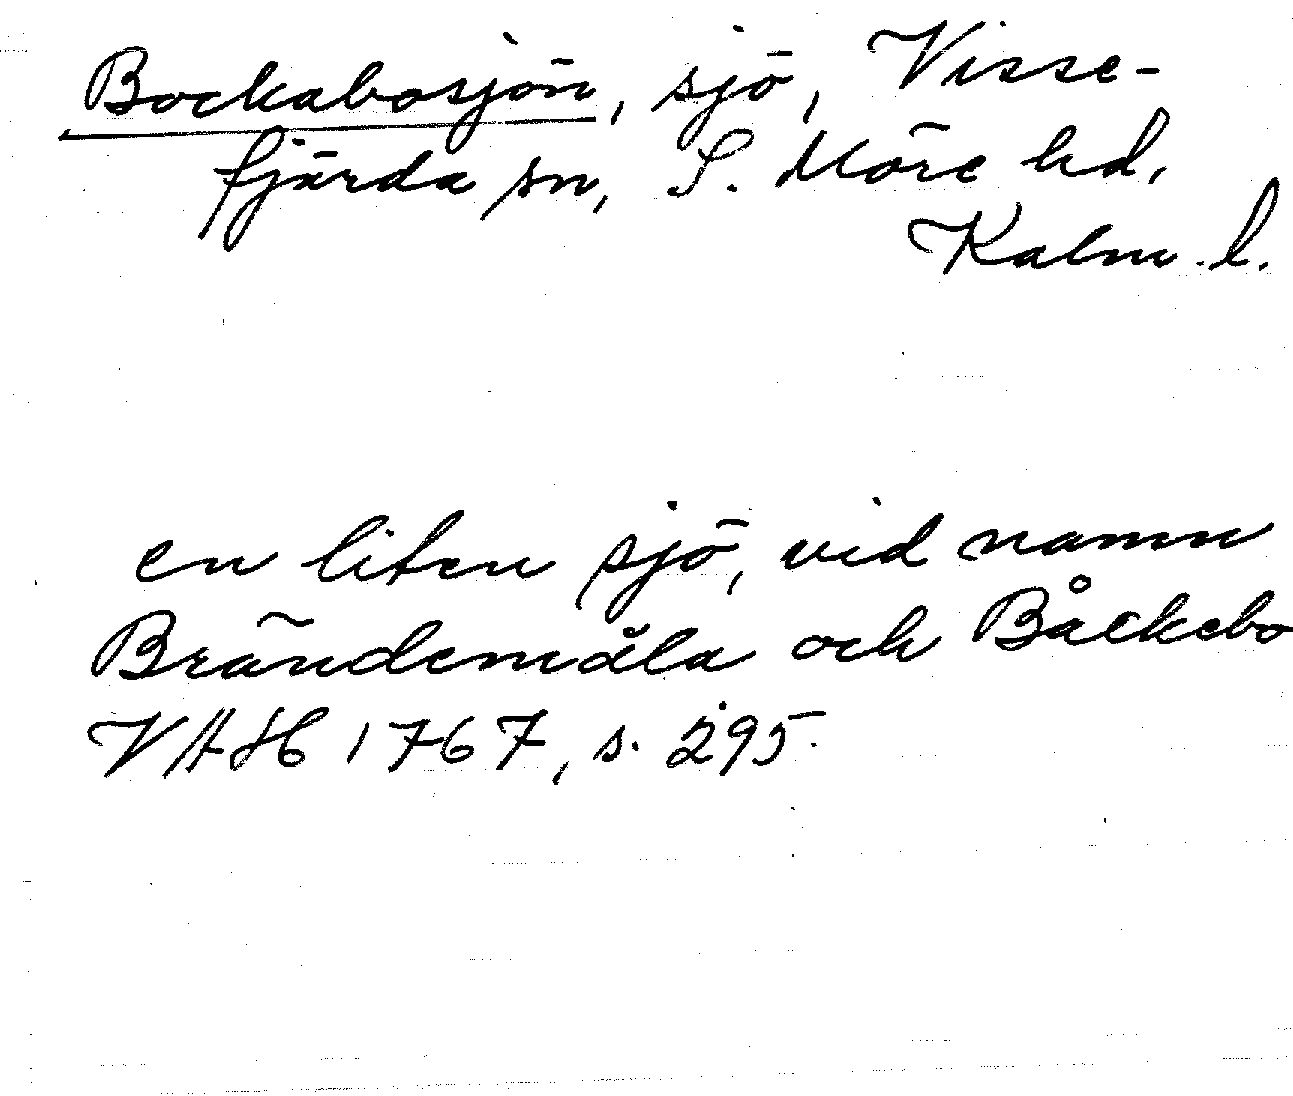 Bockabosjön, sjö, Visse-
fjärda sn, S. Möre hd,
Kalm. l.
en liten sjö, vid namn
Brändemåla och Båckebo
VHH 1767, s. 295.